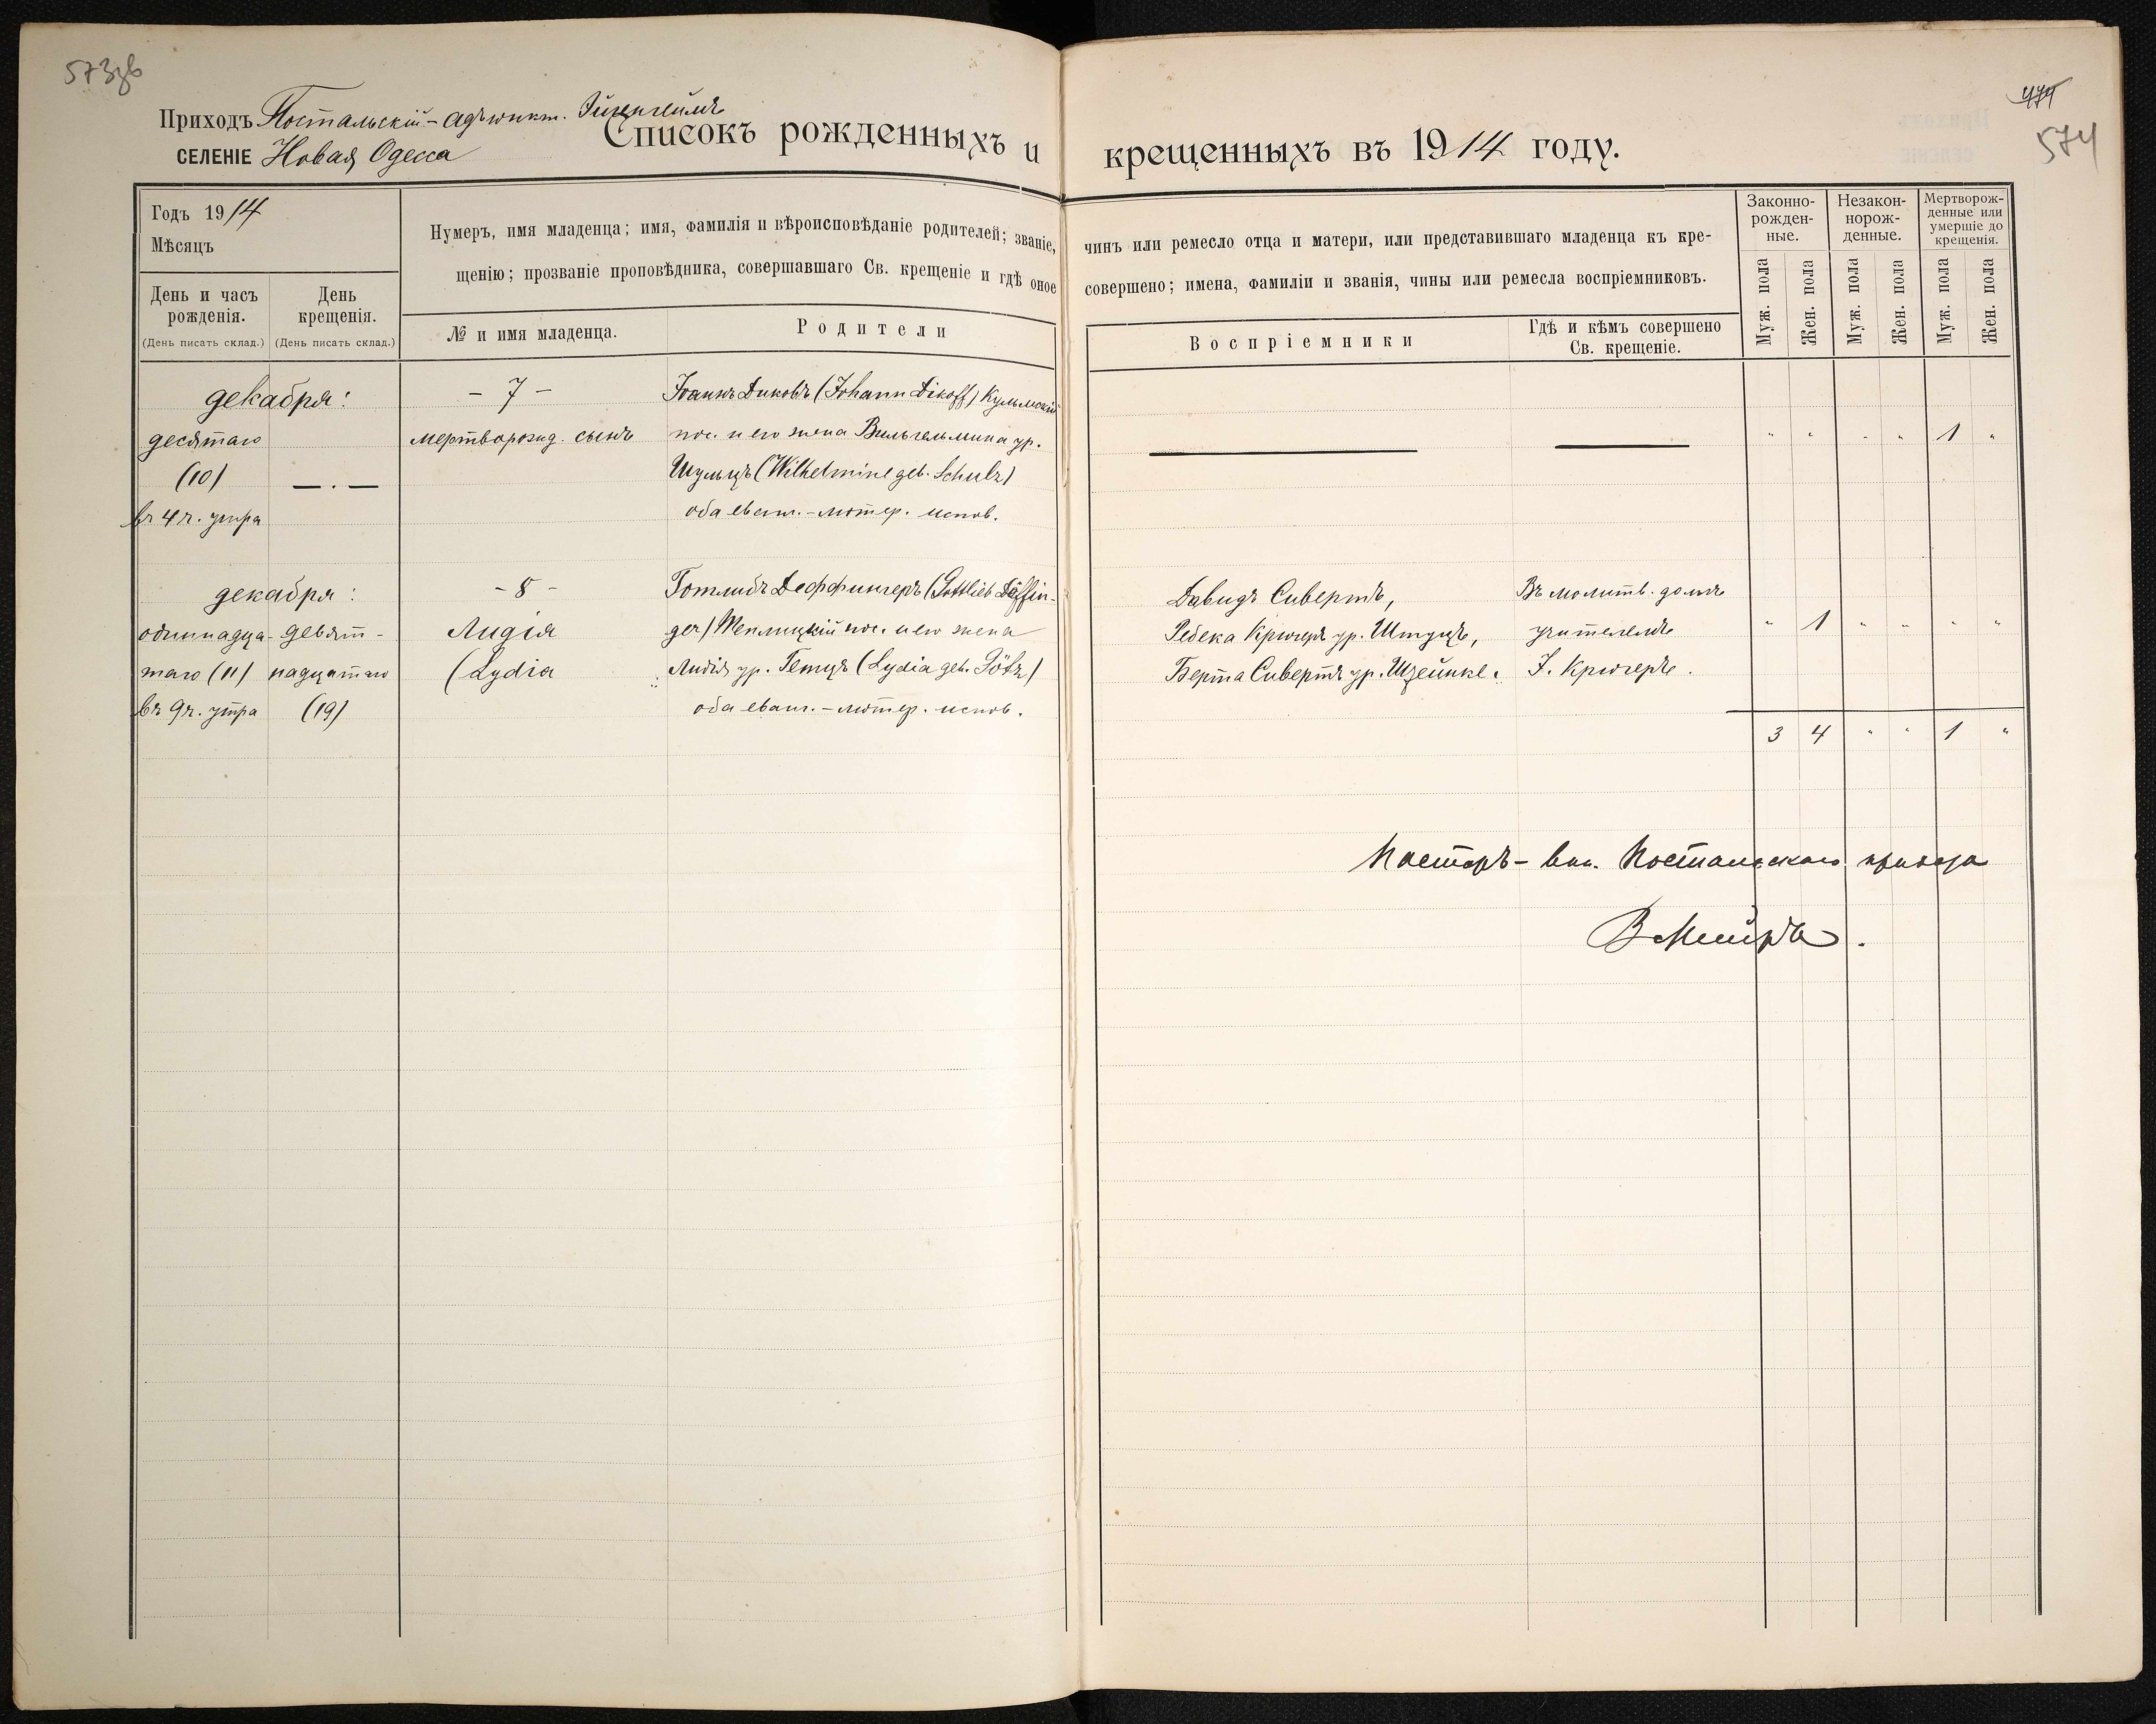 573об
474
574
Приходъ Постальскій-адъюнкт. Эйгенгеймъ
СЕЛЕНІЕ Новая Одесса
Списокъ рожденныхъ и крещенныхъ въ 1914 году.
Годъ 1914
Мѣсяцъ
День и часъ рожденія.
(День писать склад.)
День крещенія.
(День писать склад.)
Нумеръ, имя младенца; имя, фамилія и вѣроисповѣданіе родителей; званіе, чинъ или ремесло отца и матери, или представившаго младенца къ кре-
щенію; прозваніе проповѣдника, совершавшаго Св. крещеніе и гдѣ оное совершено; имена, фамиліи и званія, чины или ремесла воспріемниковъ.
№ и имя младенца.
Родители
Воспріемники
Гдѣ и кѣмъ совершено
Св. крещеніе.
Законно-
рожден-
ные.
Незакон-
норож-
денные.
Мертворож-
денные или
умершіе до
крещенія.
Муж. пола
Жен. пола
Муж. пола
Жен. пола
Муж. пола
Жен. пола
декабря:
десятаго
(10)
въ 4 ч. утра
— . —
- 7 -
мертворожд. сынъ
Іоаннъ Диковъ (Johann Dikoff) Кульмскій
пос. и его жена Вильгельмина ур.
Шульцъ (Wilhelmine geb. Schulz)
оба еванг.-лютер. испов.
" " " " 1 "
декабря:
одиннадца-
таго (11)
въ 9 ч. утра
девят-
надцатаго
(19)
- 8 -
Лидія
(Lydia
Готлибъ Деффингеръ (Gottlieb Däffin-
ger) Теплицкій пос. и его жена
Лидія ур. Гетцъ (Lydia geb. Götz)
оба еванг.-лютер. испов.
Давидъ Сивертъ,
Ребека Крюгеръ ур. Штуцъ,
Берта Сивертъ ур.
Въ молитв. домѣ
учителемъ
І. Крюгеръ.
" 1 " " " "
3 4 " " 1 "
Пасторъ-вик. Постальскаго прихода
В Мейеръ.